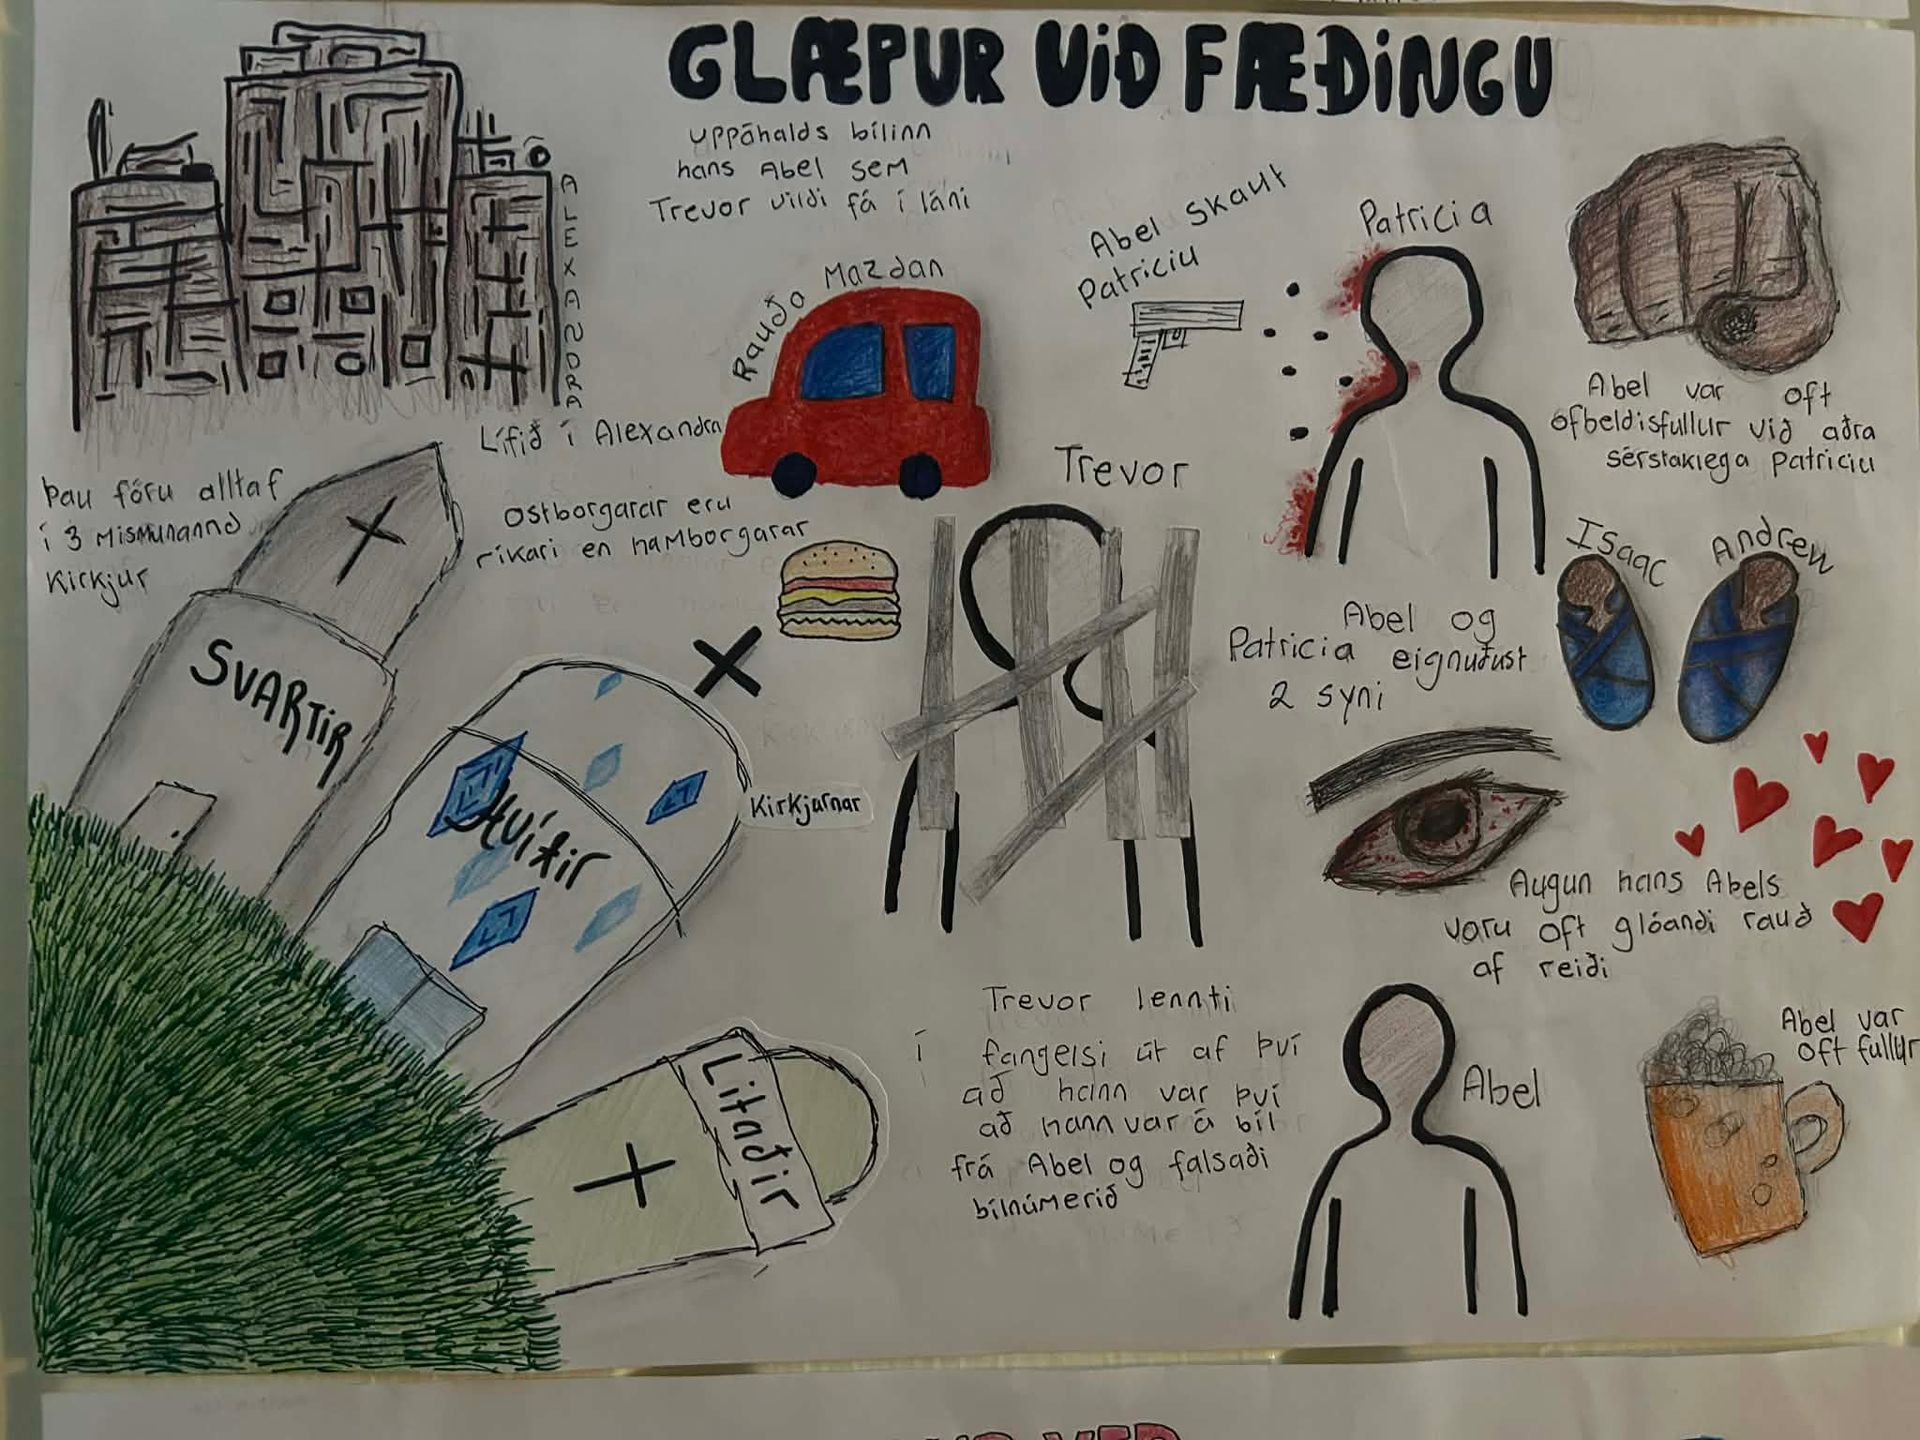 GLÆPUR VIÐ FÆÐINGU
ALEXANDRA
Lífið í Alexandra
uppáhalds bílinn
hans Abel sem
Trevor vildi fá í láni
Rauða Mazdan
Abel skaut
Patriciu
Patricia
Abel var oft
ofbeldisfullur við aðra
sérstaklega Patriciu
Þau fóru alltaf
í 3 mismunannd
kirkjur
ostborgarar eru
ríkari en hamborgarar
Trevor
Isaac
Andrew
Abel og
Patricia eignuðust
2 syni
SVARTIR
Hvítir
Kirkjurnar
Litaðir
Augun hans Abels
voru oft glóandi rauð
af reiði
Trevor lennti
í fangelsi út af því
að hann var því
að hann var á bíl
frá Abel og falsaði
bílnúmerið
Abel
Abel var
oft fullur